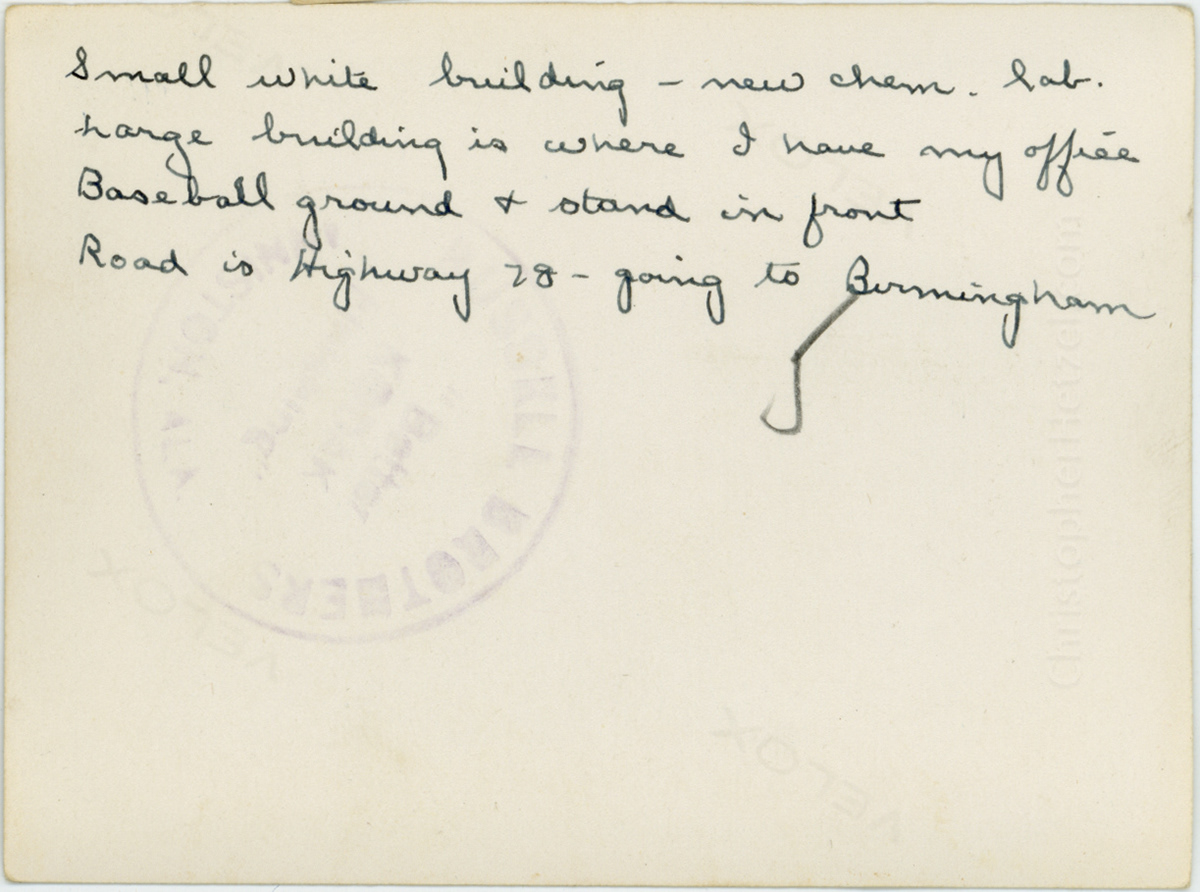 Small white building – new chem. lab.
Large building is where I have my office
Baseball ground & stand in front
Road is Highway 78 – going to Birmingham
BROTHERS
ALA
VELOX
VELOX
ChristopherHetzel.com